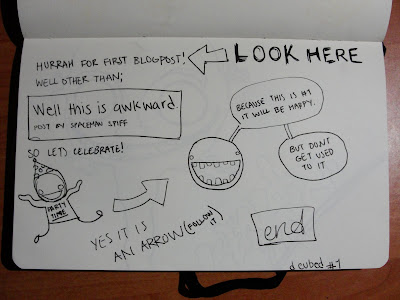 HURRAH FOR FIRST BLOGPOST!
LOOK HERE
WELL OTHER THAN;
Well this is awkward.
POST BY SPACEMAN SPIFF
SO LETS CELEBRATE!
PARTY
TIME
YES IT IS
AN ARROW (FOLLOW
IT)
BECAUSE THIS IS #1
IT WILL BE HAPPY.
BUT DONT
GET USED
TO IT
end
d cubed #1